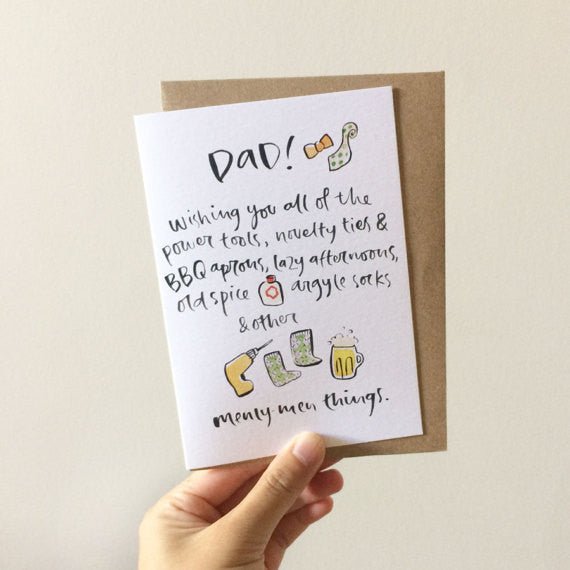 DaD!
wishing you all of the
power tools, novelty ties &
BBQ aprons, lazy afternoons,
old spice argyle socks
& other
menly-men things.